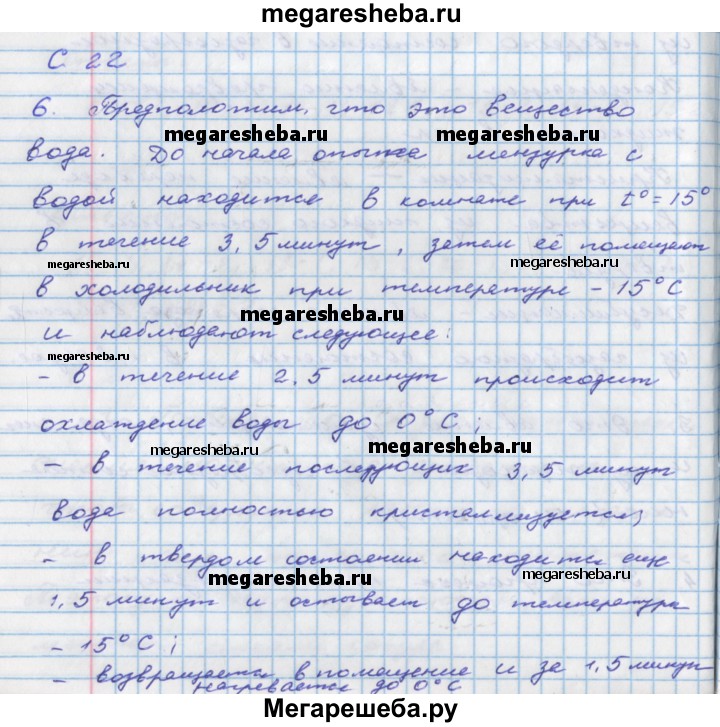 megaresheba.ru
С 22
6. Предположим, что это вещество
megaresheba.ru megaresheba.ru
вода. До начала опыта мензурка с
водой находится в комнате при t°=15°
в течение 3,5 минут, затем её помещают
megaresheba.ru megaresheba.ru
в холодильник при температуре -15°С
megaresheba.ru
и наблюдают следующее:
megaresheba.ru
- в течение 2,5 минут происходит
охлаждение воды до 0°С;
megaresheba.ru megaresheba.ru
- в течение последующих 3,5 минут
вода полностью кристаллизуется;
- в твердом состоянии находится еще
megaresheba.ru megaresheba.ru
1,5 минут и остывает до температуры
-15°С;
- возвращается в помещение и за 1,5 минут
нагревается до 0°С
Мегарешеба.ру